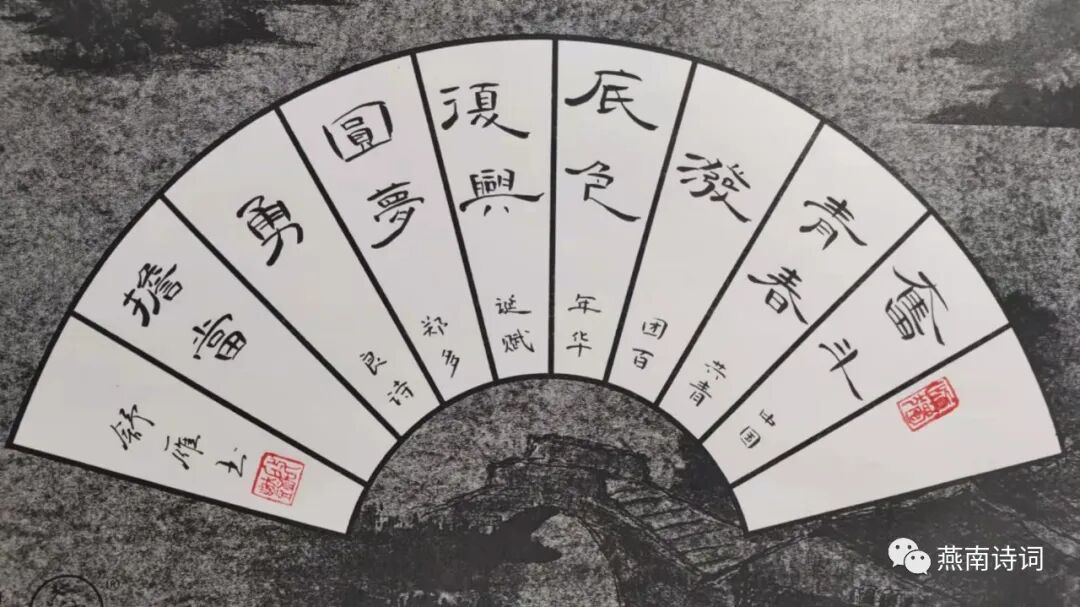 奮斗 中国
青春 共青
發 团百
底色 年华
復興 诞赋
圓夢 郑多
勇 良诗
擔當
舒雁书
燕南诗词